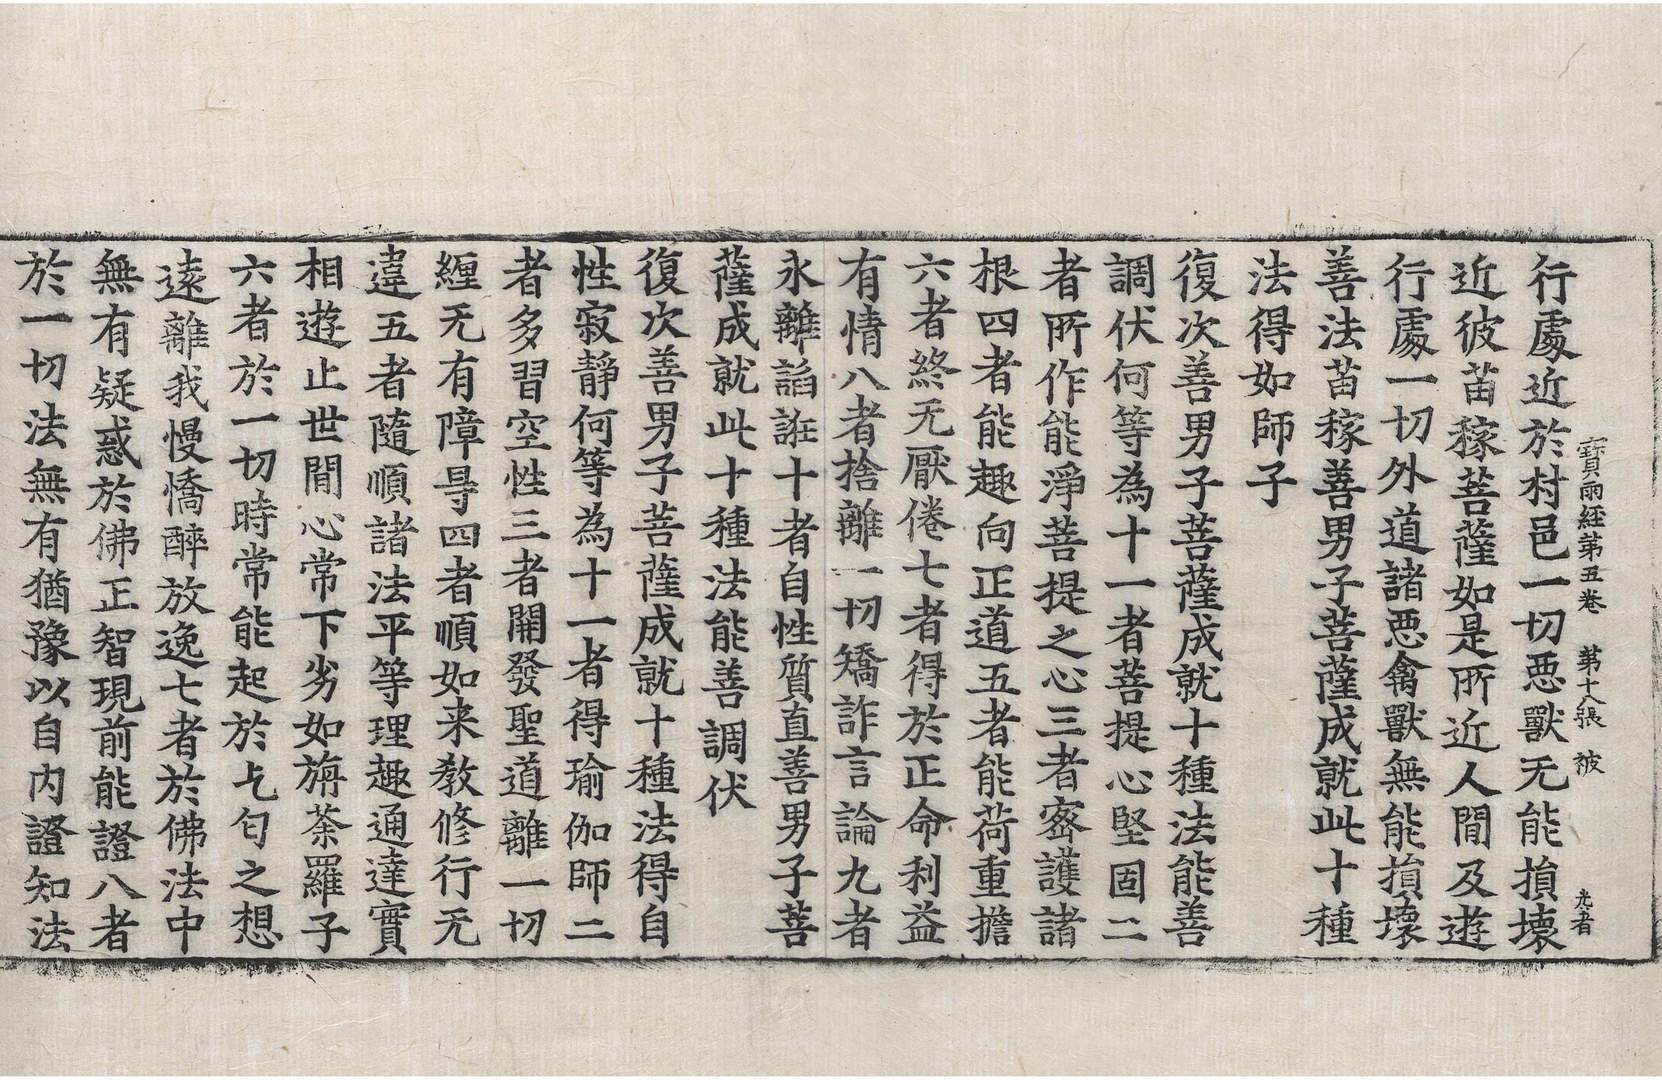 寶雨經第五卷 第十八張 被 光者
行處近於村邑一切惡獸无能損壞
近彼苗稼菩薩如是所近人間及遊
行處一切外道諸惡禽獸無能損壞
善法苗稼善男子菩薩成就此十種
法得如師子
復次善男子菩薩成就十種法能善
調伏何等為十一者菩提心堅固二
者所作能淨菩提之心三者密護諸
根四者能趣向正道五者能荷重擔
六者終无厭倦七者得於正命利益
有情八者捨離一切矯詐言論九者
永離諂誑十者自性質直善男子菩
薩成就此十種法能善調伏
復次善男子菩薩成就十種法得自
性寂靜何等為十一者得瑜伽師二
者多習空性三者開發聖道離一切
纏无有障㝵四者順如来教修行无
違五者隨順諸法平等理趣通達實
相遊止世間心常下劣如旃荼羅子
六者於一切時常能起於乞匄之想
遠離我慢憍醉放逸七者於佛法中
無有疑惑於佛正智現前能證八者
於一切法無有猶豫以自內證知法